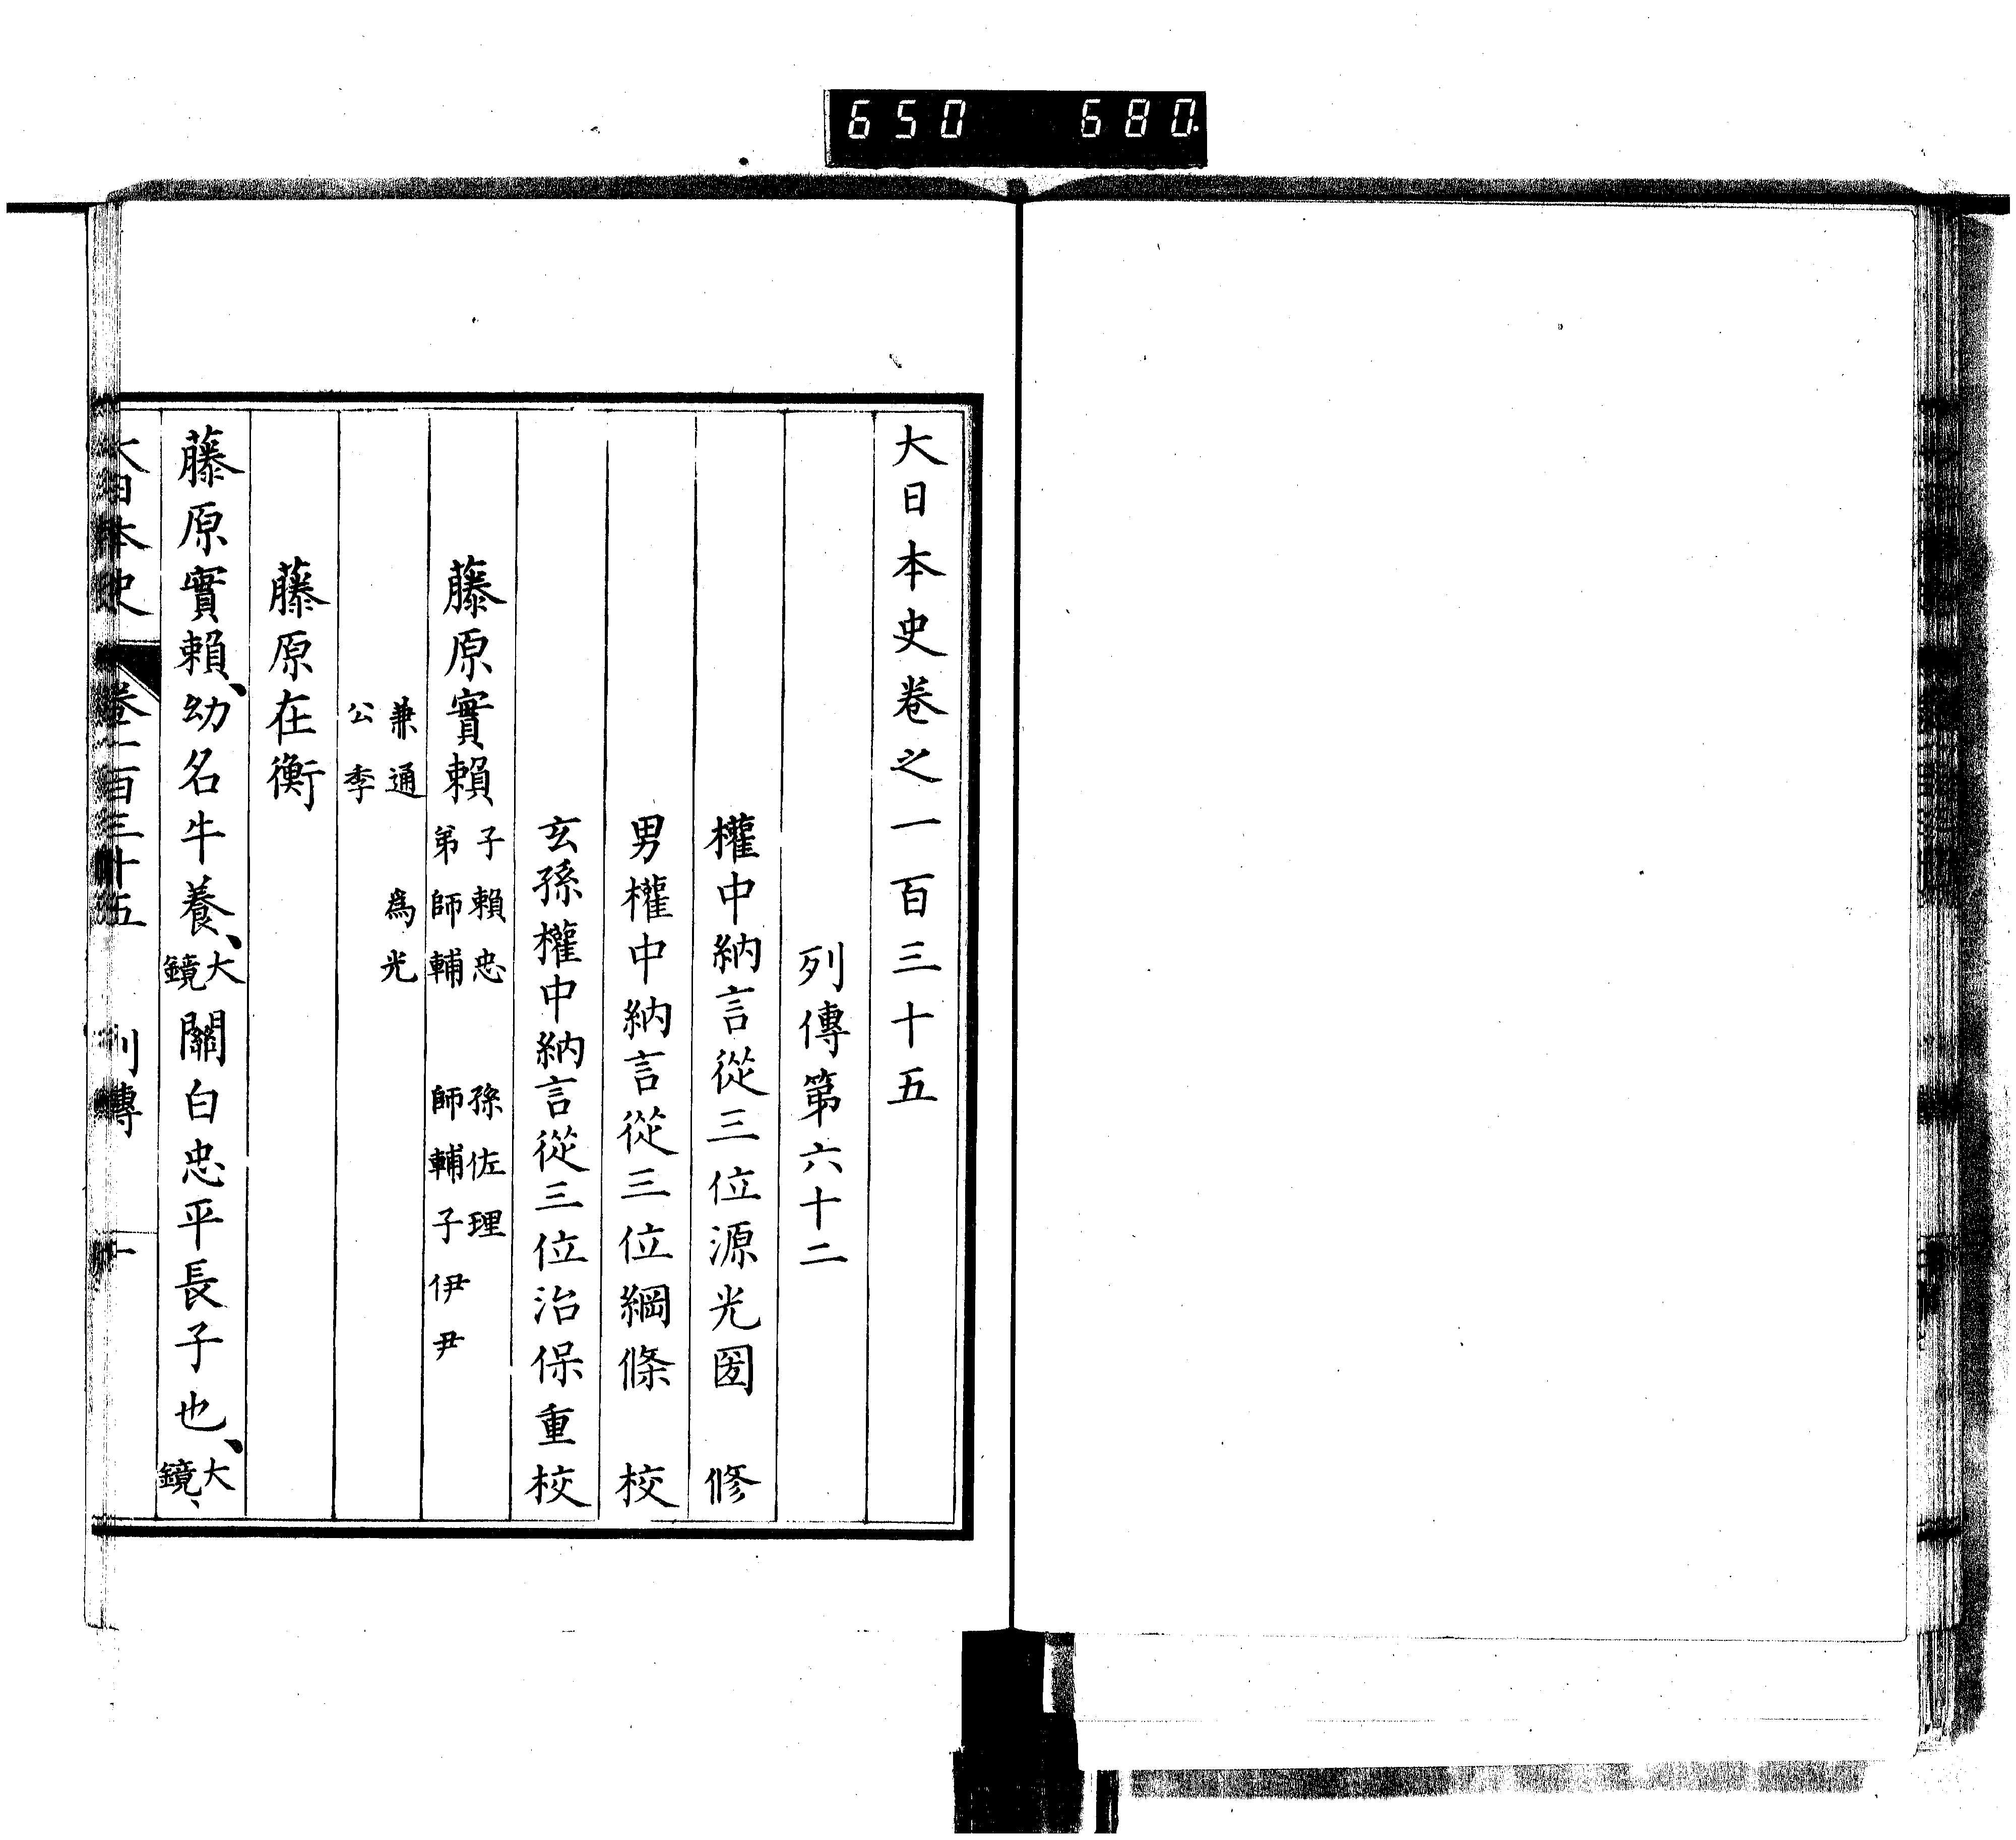 650 680.
大日本史卷之一百三十五
列傳第六十二
權中納言從三位源光圀 修
男權中納言從三位綱條 校
玄孫權中納言從三位治保重校
藤原實賴 子賴忠 孫佐理
弟師輔 師輔子伊尹
兼通 爲光
公季
藤原在衡
藤原實賴、幼名牛養、大鏡關白忠平長子也、大鏡、
大日本史 卷一百三十五 列傳 一